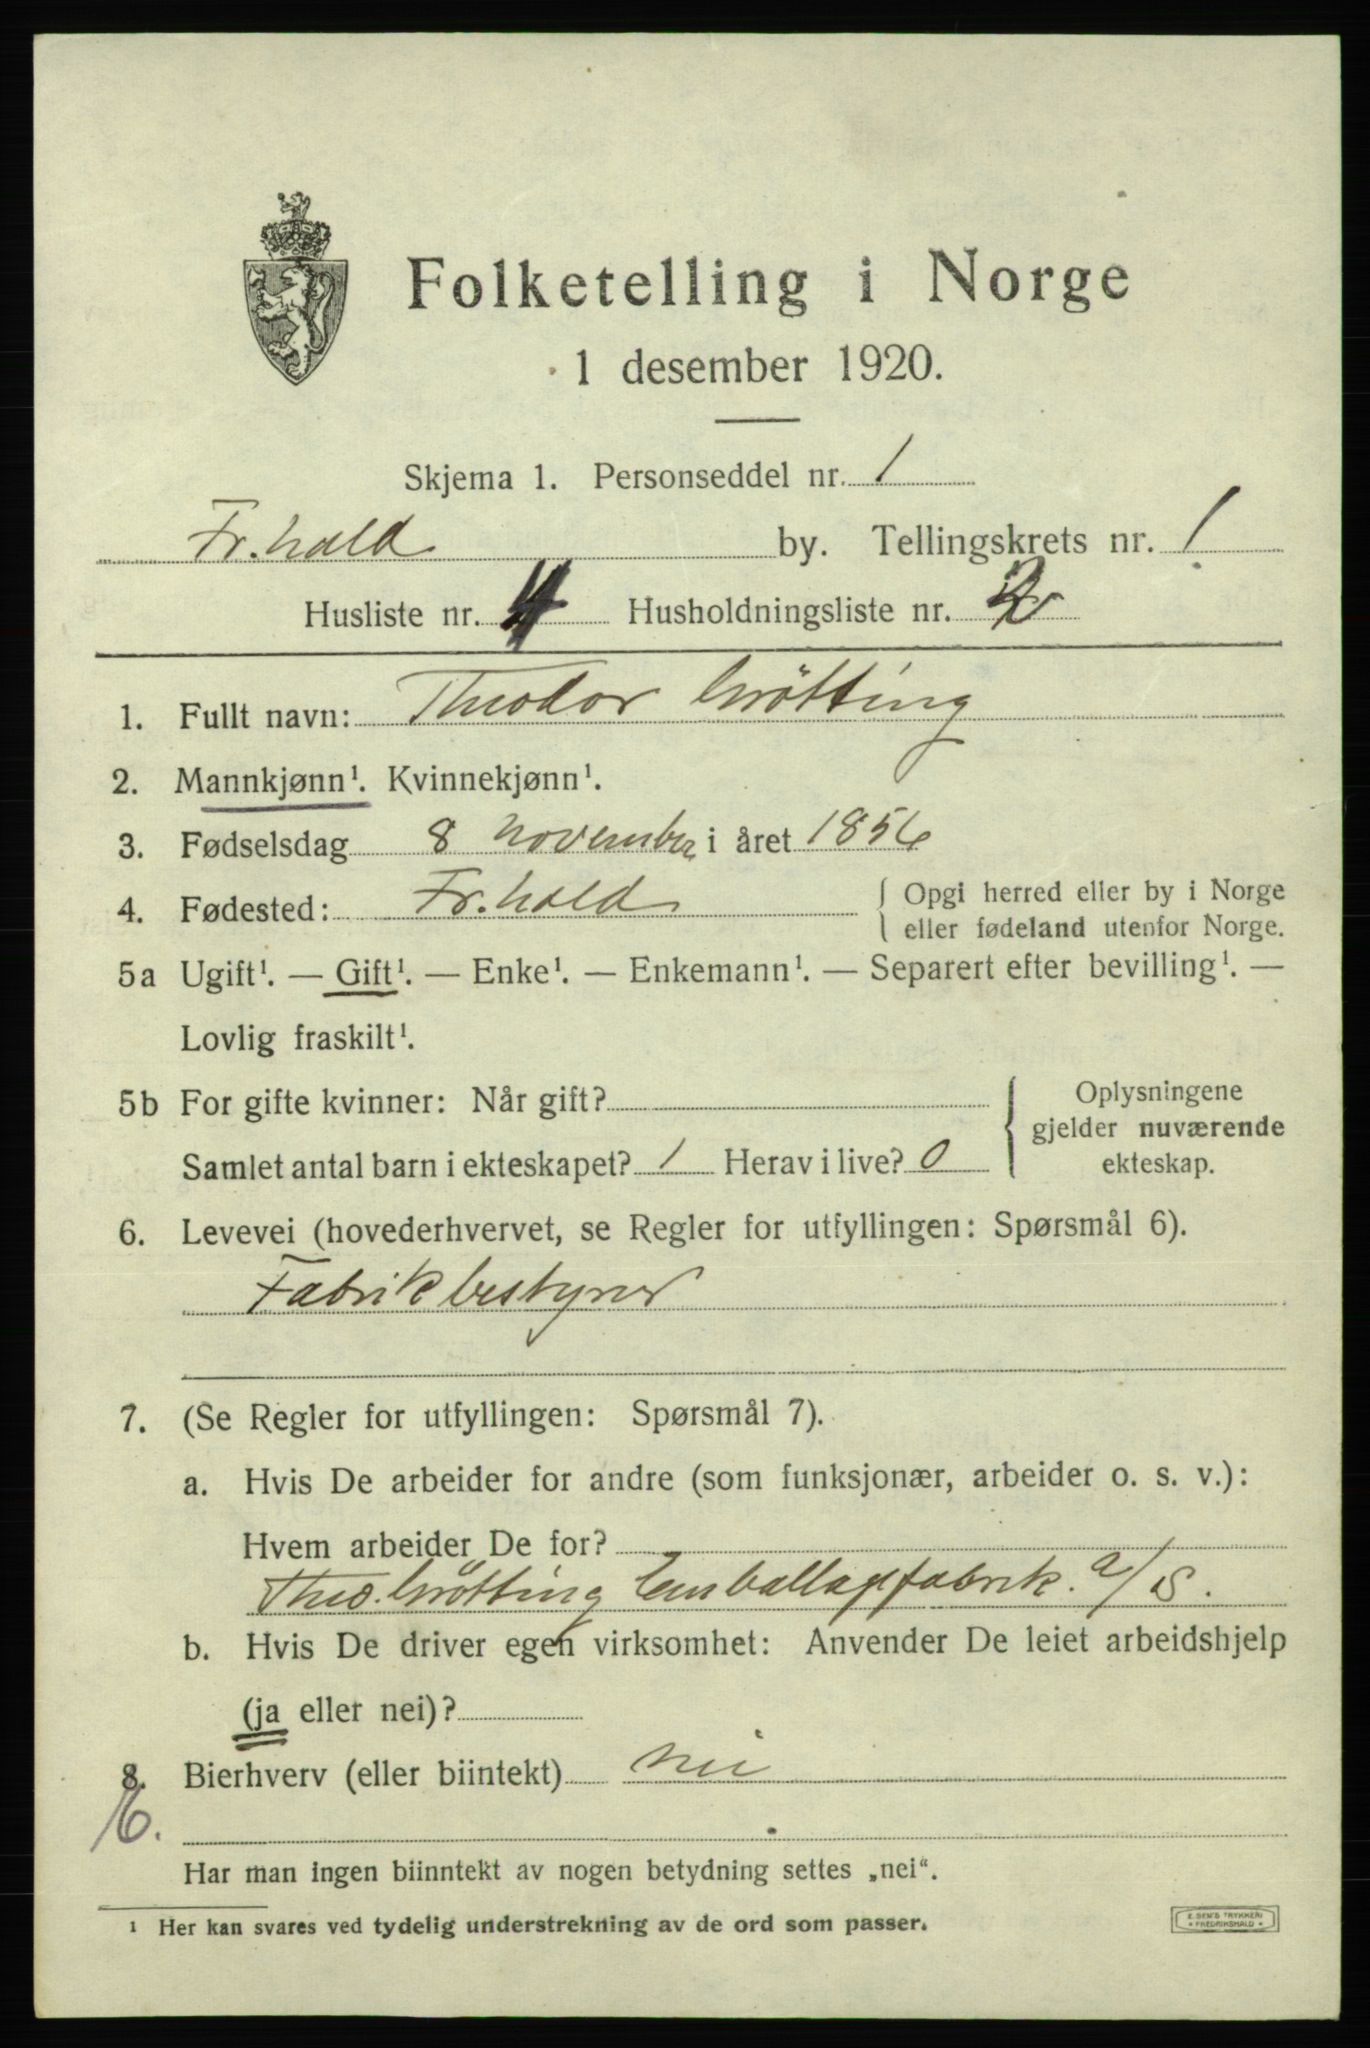 Folketelling i Norge
1 desember 1920.
Skjema 1. Personseddel nr. 1
Fr.hald by. Tellingskrets nr. 1
Husliste nr. 4 Husholdningsliste nr. 2
1. Fullt navn: Theodor Grötting
2. Mannkjønn¹. Kvinnekjønn¹.
3. Fødselsdag 8 november i året 1856
4. Fødested: Fr.hald { Opgi herred eller by i Norge
eller fødeland utenfor Norge.
5a Ugift¹. — Gift¹. — Enke¹. — Enkemann¹. — Separert efter bevilling¹. —
Lovlig fraskilt¹.
5b For gifte kvinner: Når gift?
Samlet antal barn i ekteskapet? 1 Herav i live? 0
Oplysningene
gjelder nuværende
ekteskap.
6. Levevei (hovederhvervet, se Regler for utfyllingen: Spørsmål 6).
Fabrikbestyrer
7. (Se Regler for utfyllingen: Spørsmål 7).
a. Hvis De arbeider for andre (som funksjonær, arbeider o. s. v.):
Hvem arbeider De for?
Theo. Grötting Emballagefabrik. A/S.
b. Hvis De driver egen virksomhet: Anvender De leiet arbeidshjelp
(ja eller nei)?
8. Bierhverv (eller biintekt) nei
E.
Har man ingen biinntekt av nogen betydning settes „nei“.
¹ Her kan svares ved tydelig understrekning av de ord som passer.
E. SEM'S TRYKKERI
* FREDRIKSHALD *